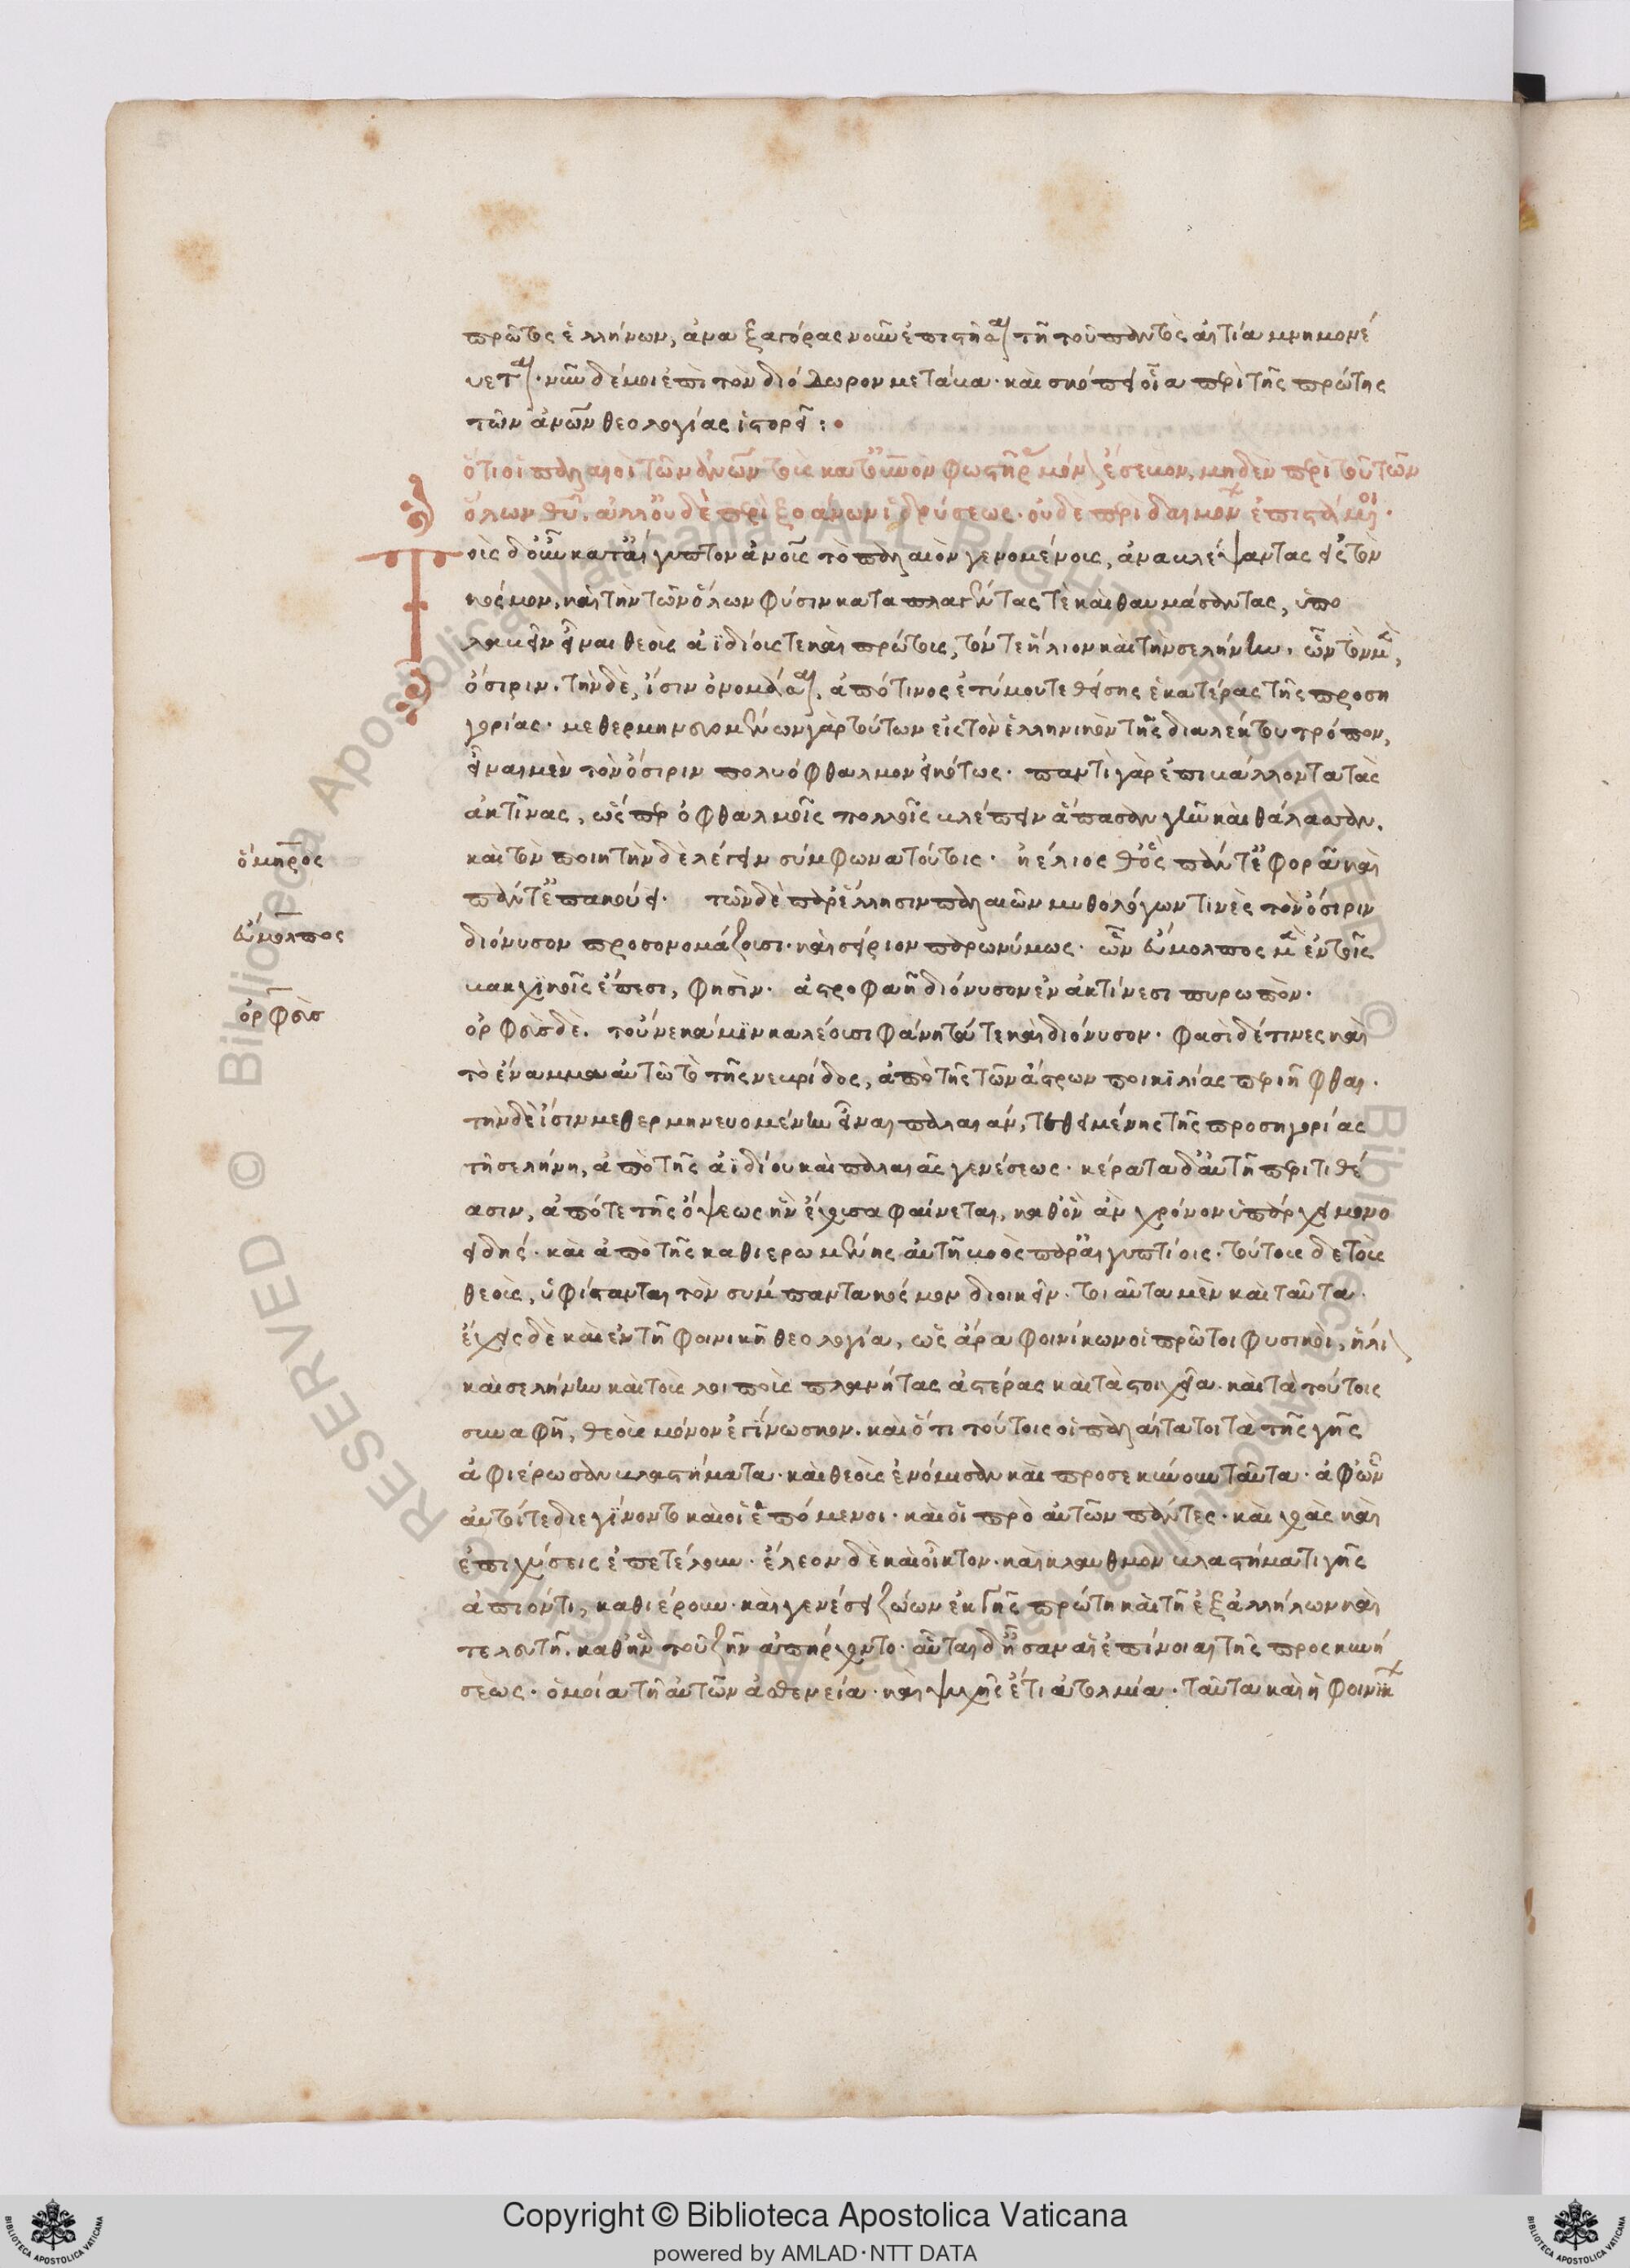 πρῶτος ἑλλήνων, ἀναξαγόρας νοῦν ἐπιστῆσαι τῆ τοῦ παντὸς αἰτία μνημονέ
υεται. νῦν δέ μοι ἐπὶ τὸν διόδωρον μετάβα. καὶ σκόπει οἷα περὶ τῆς πρώτης
τῶν ἀνῶν θεολογίας ἱστορεῖ:
ὅτι οἱ παλαιοὶ τῶν ἀνῶν τοὺς κατ' οὐνον φωστῆρας μόνους ἔσεβον. μηδὲν περὶ τοῦ τῶν
ὅλων θῦ. ἀλλ' οὐδὲ περὶ ξοάνων ἱδρύσεως. οὐδὲ περὶ δαιμόνων ἐπιστάμενοι.
τοὺς δ' οὖν κατ' αἴγυπτον ἀνους τὸ παλαιὸν γενομένους, ἀναβλέψαντας εἰς τὸν
κόσμον, καὶ τὴν τῶν ὅλων φύσιν καταπλαγέντας τὲ καὶ θαυμάσαντας, ὑπο
λαβεῖν εἶναι θεοὺς ἀϊδίους τε καὶ πρώτους, τόν τε ἥλιον καὶ τὴν σελήνην. ὧν τὸν μὲν,
ὄσιριν. τὴν δὲ, ἴσιν ὀνομάσαι, ἀπό τινος ἐτύμου τεθείσης ἑκατέρας τῆς προση
γορίας. μεθερμηνευομένων γὰρ τούτων εἰς τὸν ἑλληνικὸν τῆς διαλέκτου τρόπον,
εἶναι μὲν τὸν ὄσιριν πολυόφθαλμον εἰκότως. παντὶ γὰρ ἐπιβάλλοντα τὰς
ἀκτῖνας, ὥσπερ ὀφθαλμοῖς πολλοῖς βλέπειν ἅπασαν γῆν καὶ θάλασσαν.
ὅμηρος
καὶ τὸν ποιητὴν δὲ λέγειν σύμφωνα τούτοις. ἠέλιος θ' ὃς πάντ' ἐφορᾶ καὶ
πάντ' ἐπακούει. τῶν δὲ παρ' ἕλλησιν παλαιῶν μυθολόγων τινὲς τὸν ὄσιριν
εὔμολπος
διόνυσον προσονομάζουσι. καὶ σείριον παρωνύμως. ὧν εὔμολπος μὲν ἐν τοῖς
βακχικοῖς ἔπεσι, φησὶν. ἀστροφαῆ διόνυσον ἐν ἀκτίνεσι πυρωπὸν.
ὀρφεὺσ
ὀρφεὺς δὲ. τοὔνεκά μιν καλέουσι φάνητά τε καὶ διόνυσον. φασὶ δέ τινες καὶ
τὸ ἔναμμα αὐτῶ τὸ τῆς νεβρίδος, ἀπὸ τῆς τῶν ἄστρων ποικιλίας περιῆφθαι.
τὴν δὲ ἴσιν μεθερμηνευομένην εἶναι παλαιάν, τεθειμένης τῆς προσηγορίας
τῆ σελήνη, ἀπὸ τῆς ἀϊδίου καὶ παλαιᾶς γενέσεως. κέρατα δ' αὐτῆ περιτιθέ
ασιν, ἀπό τε τῆς ὄψεως ἣν ἔχουσα φαίνεται, καθ' ὃν ἀν χρόνον ὑπάρχει μηνο
ειδής. καὶ ἀπὸ τῆς καθιερωμένης αὐτῆ βοὸς παρ' αἰγυπτίοις. τούτους δὲ τοὺς
θεοὺς, ὑφίστανται τὸν σύμπαντα κόσμον διοικεῖν. τοιαῦτα μὲν καὶ ταῦτα.
ἔχεις δὲ καὶ ἐν τῆ φοινικῆ θεολογία, ὡς ἄρα φοινίκων οἱ πρῶτοι φυσικοὶ, ἥλιον
καὶ σελήνην καὶ τοὺς λοιποὺς πλανήτας ἀστέρας καὶ τὰ στοιχεῖα. καὶ τὰ τούτοις
συναφῆ, θεοὺς μόνον ἐγίνωσκον. καὶ ὅτι τούτοις οἱ παλαίτατοι τὰ τῆς γῆς
ἀφιέρωσαν βλαστήματα. καὶ θεοὺς ἐνόμισαν καὶ προσεκύνουν ταῦτα. ἀφ' ὧν
αὐτοί τε διεγίνοντο καὶ οἱ ἑπόμενοι. καὶ οἱ πρὸ αὐτῶν πάντες. καὶ χοὰς καὶ
ἐπιχύσεις ἐπετέλουν. ἔλεον δὲ καὶ οἶκτον. καὶ κλαυθμὸν βλαστήματι γῆς
ἀπιόντι, καθιέρουν. καὶ γενέσει ζώων ἐκ γῆς πρώτη καὶ τῆ ἐξ ἀλλήλων καὶ
τελευτῆ. καθ' ἣν τοῦ ζῆν ἀπήρχοντο. αὗται δ' ἦσαν αἱ ἐπίνοιαι τῆς προσκυνή
σεως. ὁμοία τῆ αὐτῶν ἀσθενεία. καὶ ψυχῆς ἔτι ἀτολμία. ταῦτα καὶ ἡ φοινίκων
Copyright © Biblioteca Apostolica Vaticana
powered by AMLAD·NTT DATA